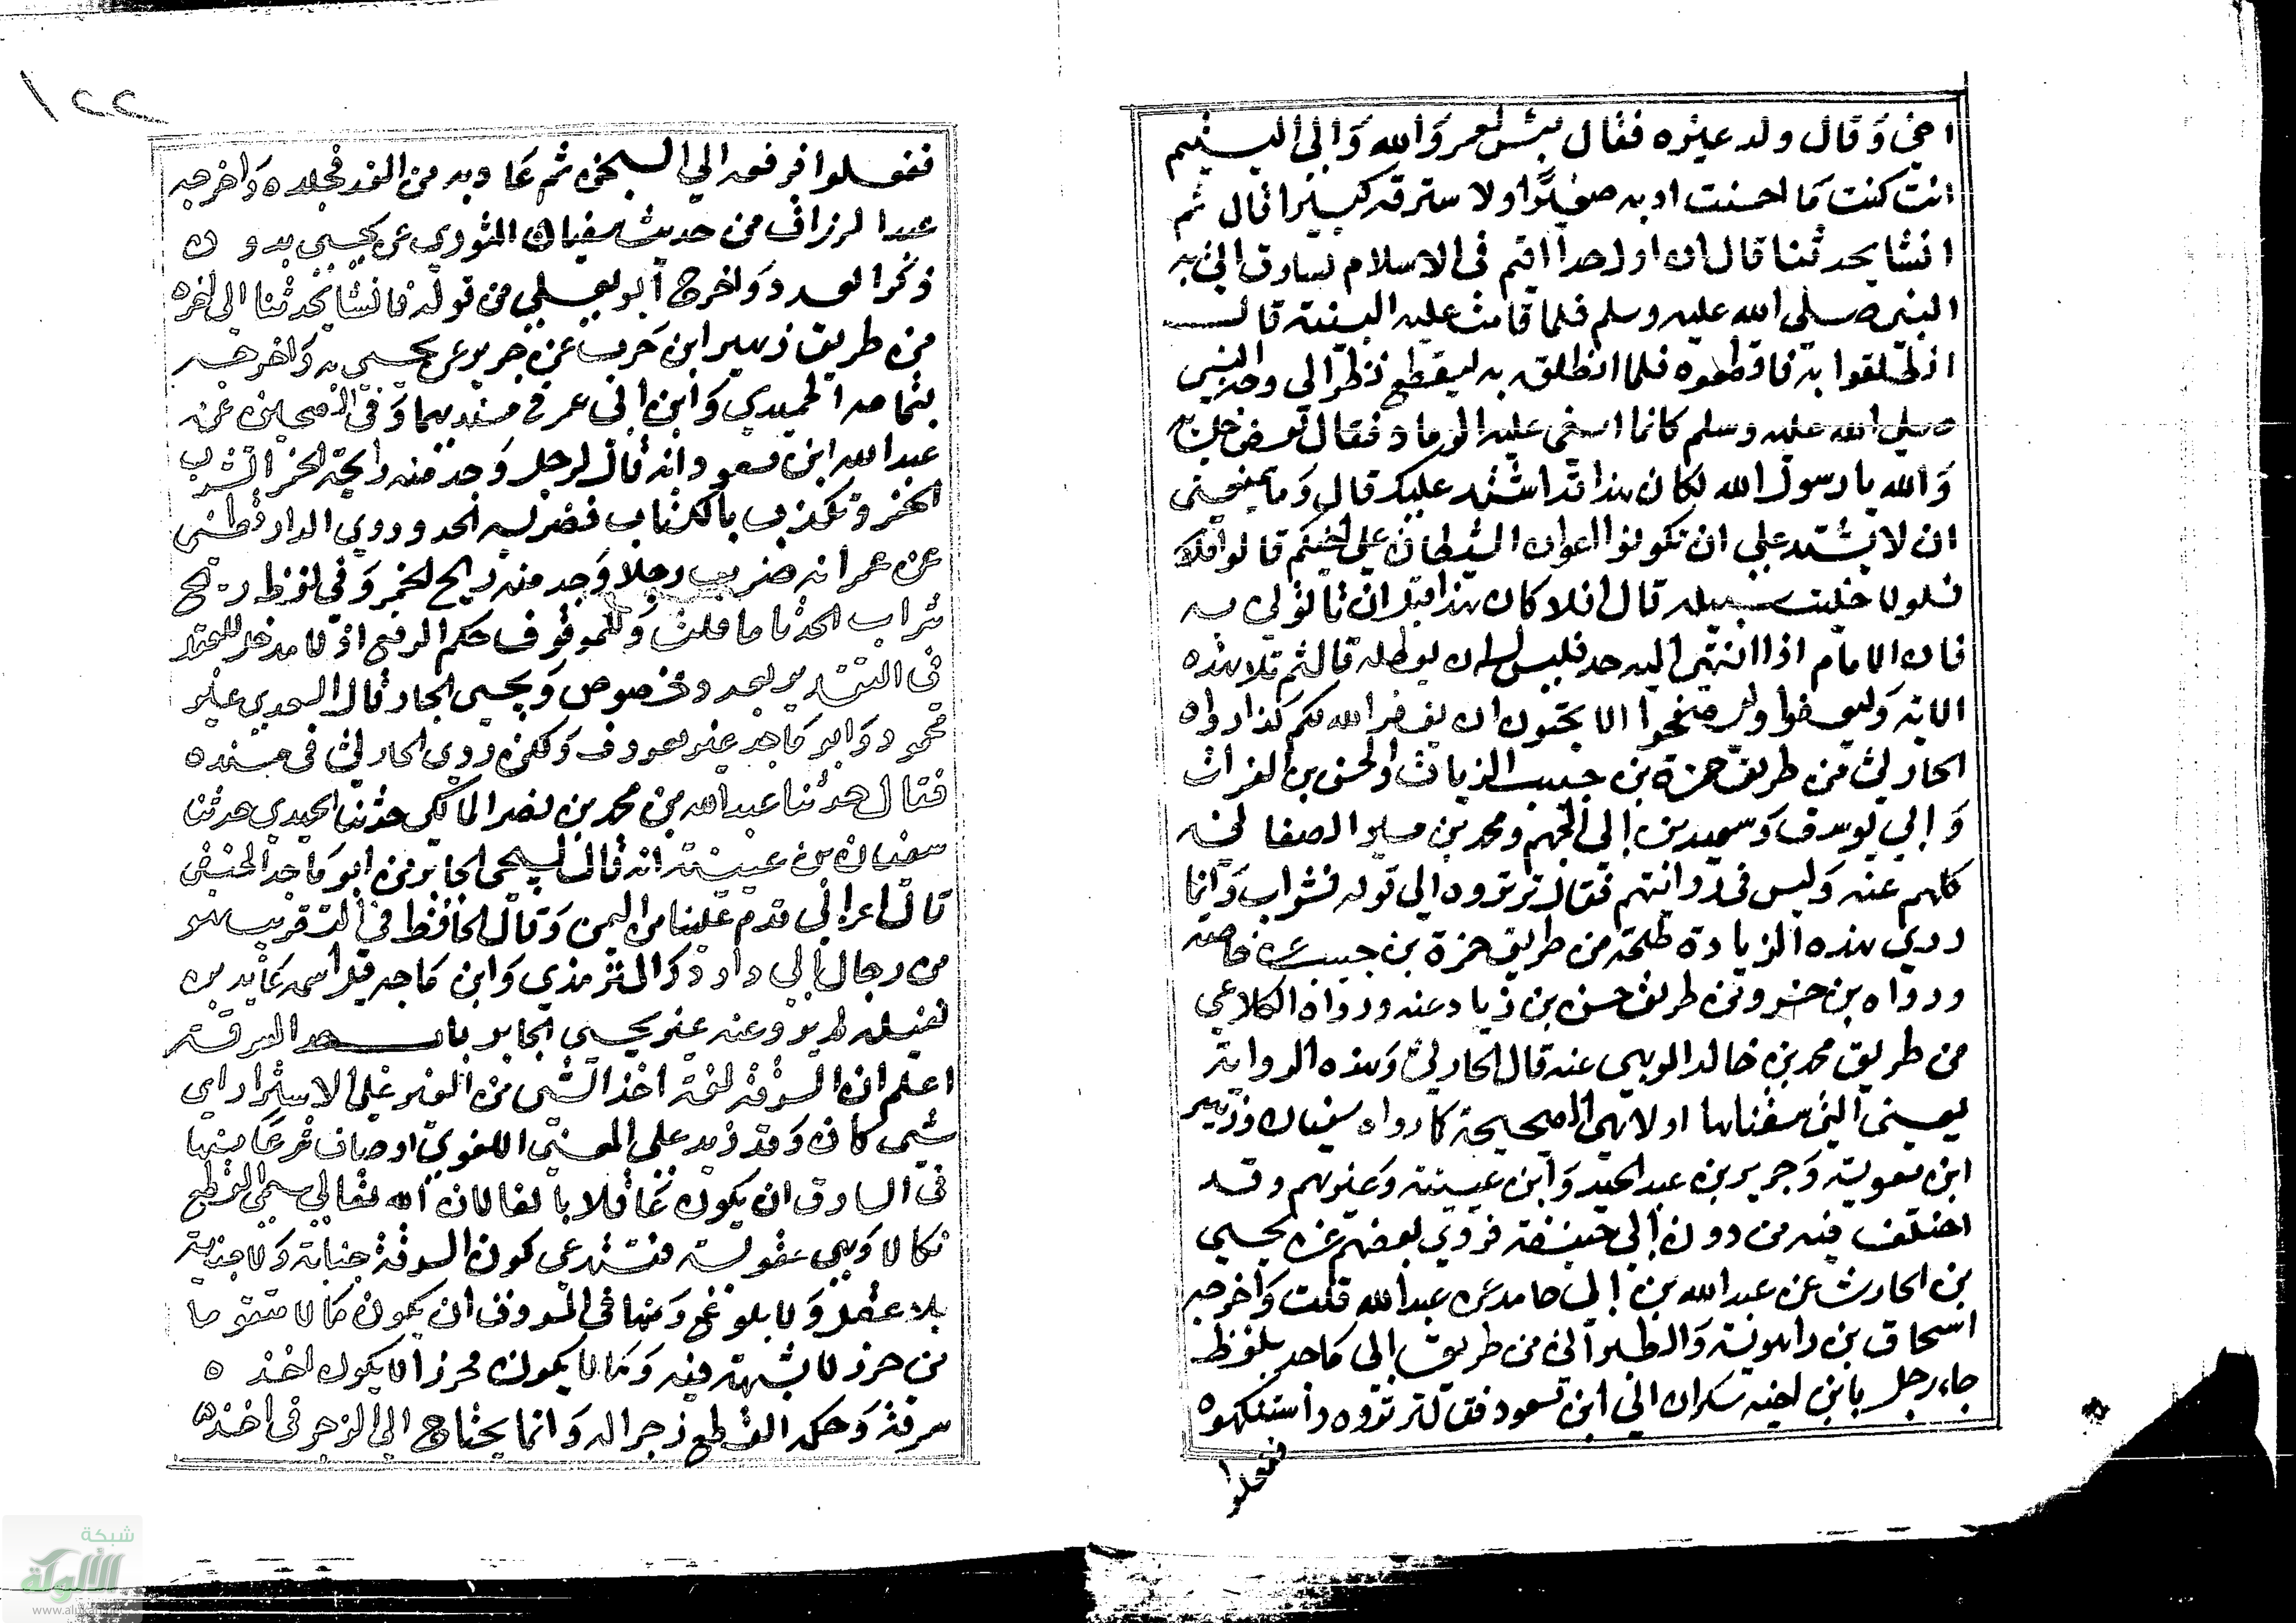 اخي وقال ولد غيره فقال بئس لعمر والله والي اليتيم
انت كنت ما احسنت ادبه صغيرا ولا سترته كبيرا قال ثم
انشا يحدثنا قال ان اول حد اقيم في الاسلام لسارق اتي به
النبي صلي الله عليه وسلم فلما قامت عليه البينة قال
انطلقوا به فاقطعوه فلما انطلق به ليقطع نظر الي وجه النبي
صلي الله عليه وسلم كانما اسفي عليه الرماد فقال بعض جلسائه
والله يا رسول الله لكان هذا قد اشتد عليك قال وما يمنعني
ان لا يشتد علي ان تكونوا اعوان الشيطان علي اخيكم قالوا افلا
فلولا خليت سبيله قال افلا كان هذا قبل ان تاتوني به
فان الامام اذا انتهي اليه حد فليس له ان يعطله قال ثم تلا هذه
الاية وليعفوا وليصفحوا الا تحبون ان يغفر الله لكم كذا رواه
الحارثي من طريق حمزة بن حبيب الزيات والحسن بن الفرات
وابي يوسف وسعيد بن ابي الجهم ومحمد بن ميسر الصغاني
كلهم عنه وليس في روايتهم فقال ترتروه الي قوله فشراب وانما
روي هذه الزيادة طلحة من طريق حمزة بن حبيب عنه خاصة
ورواه بن خسرو من طريق حسن بن زياد عنه ورواه الكلاعي
من طريق محمد بن خالد الوهبي عنه قال الحارثي وهذه الرواية
يعني التي سقناها اولا هي الصحيحة كما رواه سفيان وزهير
ابن معوية وجرير بن عبد الحميد وابن عيينة وغيرهم وقد
اختلف فيه من دون ابي حنيفة فروي بعضهم عن يحيي
بن الحارث عن عبد الله بن ابي حامد عن عبد الله قلت واخرجه
اسحاق بن راهوية والطبراني من طريق ابي ماجد بلفظ
جاء رجل بابن اخيه سكران الي ابن مسعود فقال ترتروه واستنكهوه
ففعلوا
١٢٢
ففعلوا فرفعه الي السجن ثم عاد به من الغد فجلده واخرجه
عبد الرزاق من حديث سفيان الثوري عن يحيي بدون
ذكر العدد واخرج ابو يعلي من قوله فانشا يحدثنا الي اخره
من طريق زهير ابن حرب عن جرير عن يحيي به واخرجه
بتمامه الحميدي وابن ابي عمر في مسنديهما وفي الصحيحين عن
عبد الله ابن مسعود انه قال لرجل وجد منه رايحة الخمر اتشرب
الخمر وتكذب بالكتاب فضربه الحد وروي الدارقطني
عن عمر انه ضرب رجلا وجد منه ريح الخمر وفي لفظ ريح
شراب الحد تاما قلت وللموقوف حكم الرفع اذ لا مدخل للعقل
في التقدير بعدد مخصوص ويحيي الجابر قال السعدي غير
محمود وابو ماجد غير معروف ولكن روي الحارثي في مسنده
فقال حدثنا عبد الله بن محمد بن نصر المالكي حدثنا الحميدي حدثنا
سفيان بن عيينة انه قال ليحيي الجابر من ابو ماجد الحنفي
قال اعرابي قدم علينا من اليمن وقال الحافظ في التقريب هو
من رجال ابي داود والترمذي وابن ماجه قيل اسمه عايد بن
نضيله لم يرو عنه غير يحيي الجابر باب حد السرقة
اعلم ان السرقة لغة اخذ الشي من الغير علي الاستسرار اي
شي كان وقد زيد علي المعني اللغوي اوصاف شرعا منها
في السارق ان يكون عاقلا بالغا لان الله تعالي سمي القطع
نكالا وهي عقوبة فتستدعي كون السرقة جناية ولا جناية
بلا عقل ولا بلوغ ومنها في المسروق ان يكون مالا متقوما
من حرز لا شبهة فيه وما لا يكون محرزا لا يكون اخذه
سرقة وحكمه القطع زجرا له وانما يحتاج الي الزجر في اخذ
شبكة
الألوكة